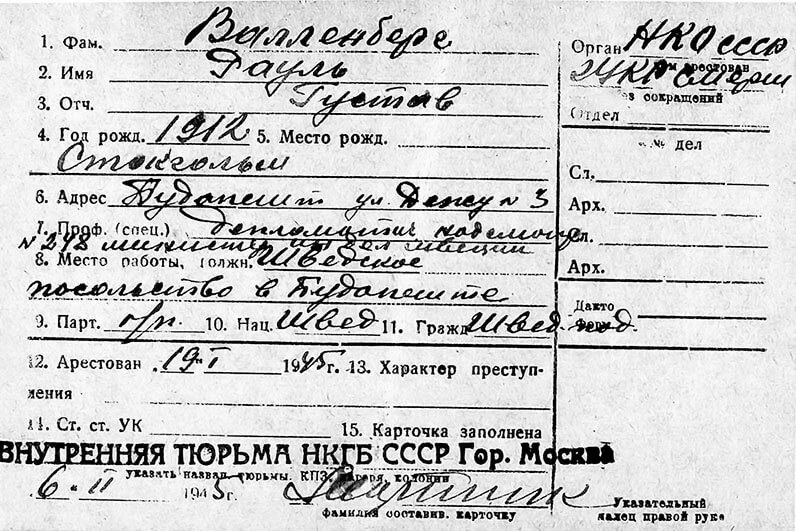 1. Фам. Валленберг
2. Имя Рауль
3. Отч. Густав
4. Год рожд. 1912 5. Место рожд.
Стокгольм
6. Адрес Будапешт ул. Дежу № 3
7. Проф. (спец.) дипломатич.
8. Место работы, должн. Шведское
посольство в Будапеште
9. Парт. б/п. 10. Нац. Швед 11. Гражд Швед. под.
12. Арестован 19-I 1945 г. 13. Характер преступ-
ления
14. Ст. ст. УК
15. Карточка заполнена
ВНУТРЕННЯЯ ТЮРЬМА НКГБ СССР Гор. Москва
указать назван. тюрьмы, КПЗ, колонии
6. II 1945 г.
фамилия составив. карточку
Орган НКО СССР
арестован
Смерш
без сокращений
Отдел
дел
Сл.
Арх.
Сл.
Арх.
Дакто
Указательный
палец правой руки